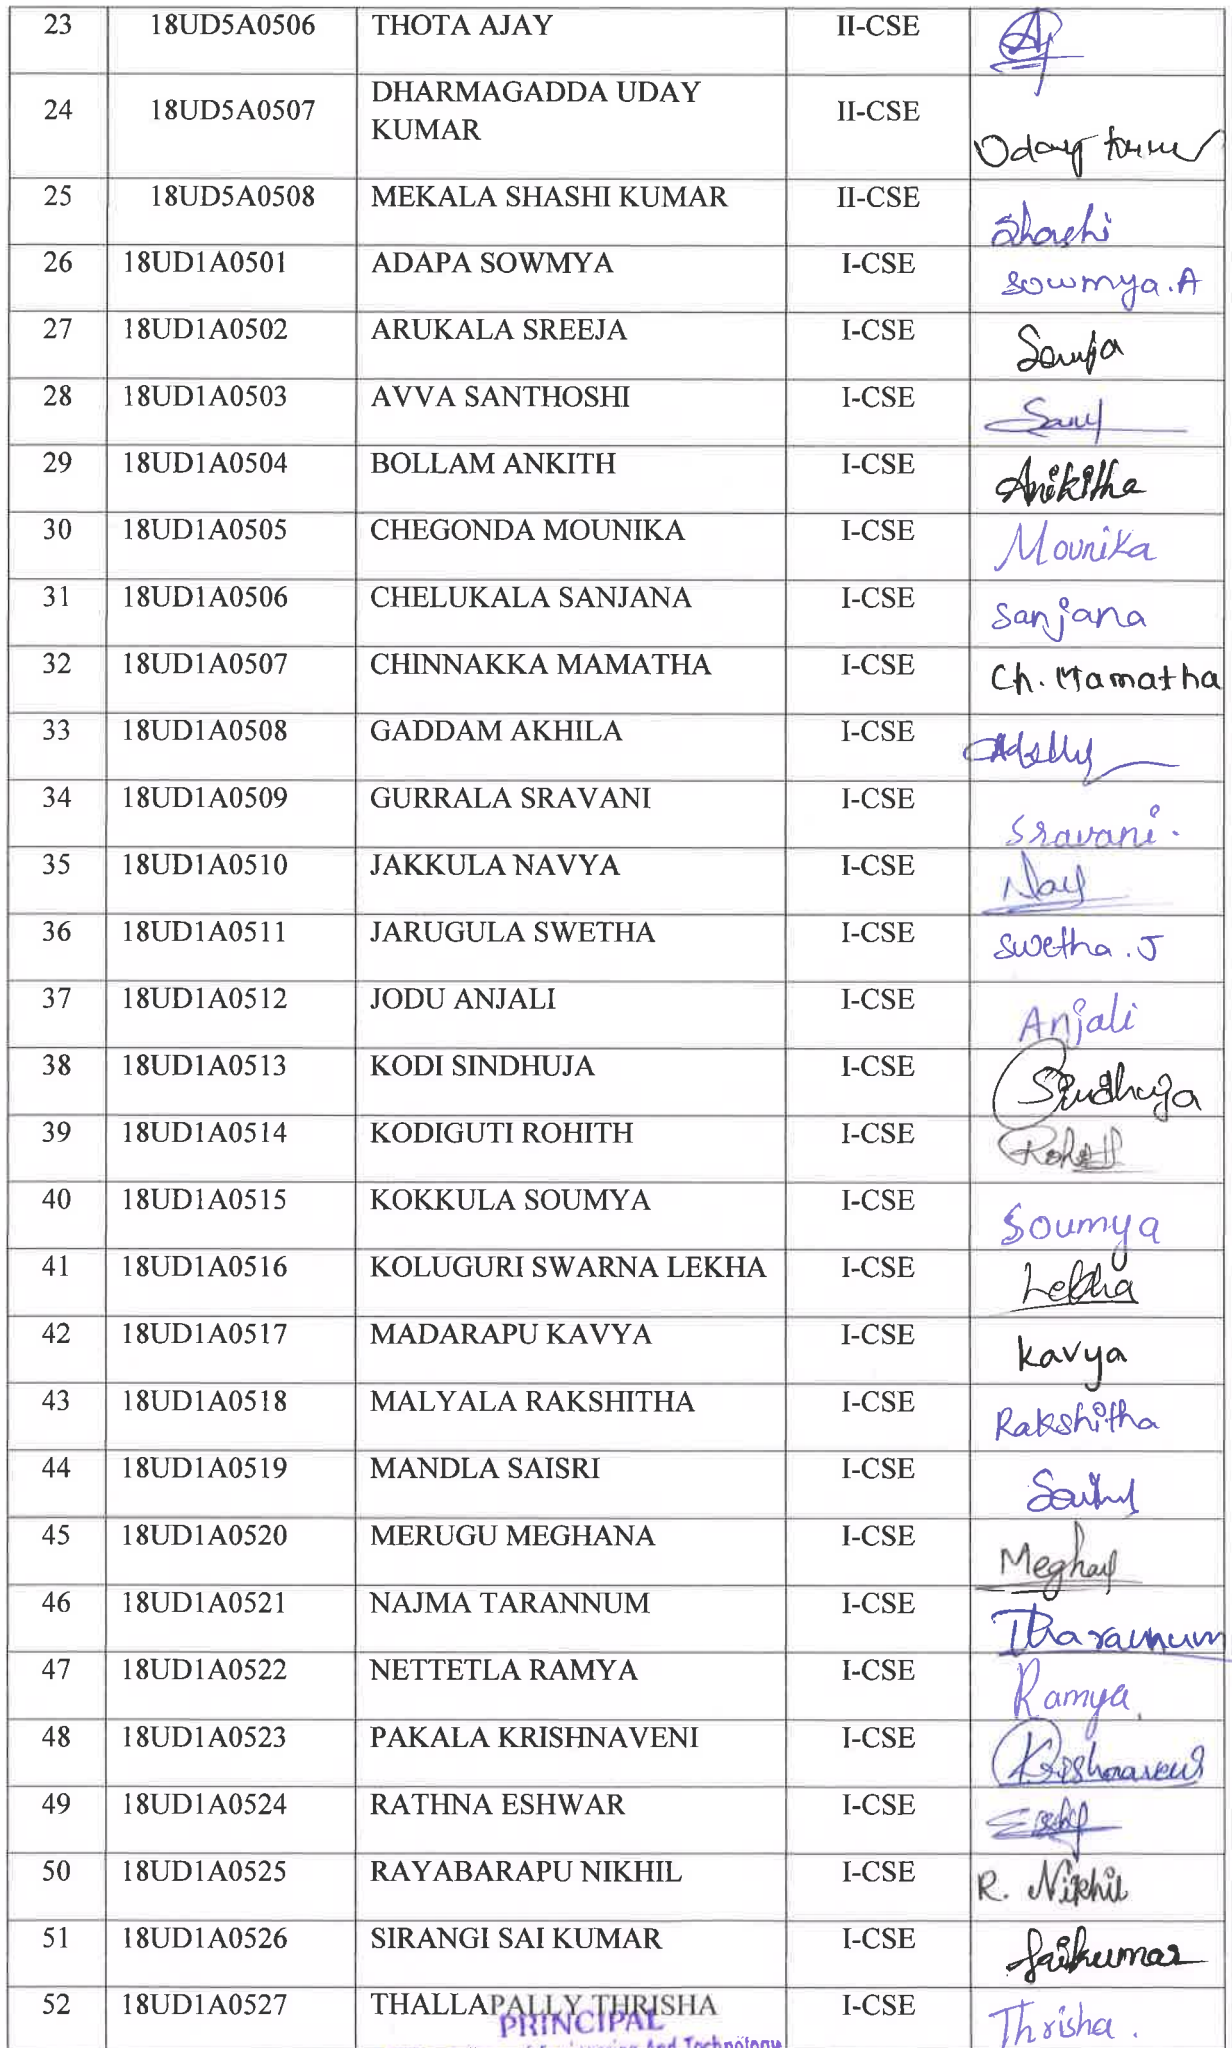 23 18UD5A0506 THOTA AJAY II-CSE
24 18UD5A0507 DHARMAGADDA UDAY KUMAR II-CSE Uday
25 18UD5A0508 MEKALA SHASHI KUMAR II-CSE Shashi
26 18UD1A0501 ADAPA SOWMYA I-CSE Sowmya.A
27 18UD1A0502 ARUKALA SREEJA I-CSE
28 18UD1A0503 AVVA SANTHOSHI I-CSE
29 18UD1A0504 BOLLAM ANKITH I-CSE Anikitha
30 18UD1A0505 CHEGONDA MOUNIKA I-CSE Mounika
31 18UD1A0506 CHELUKALA SANJANA I-CSE Sanjana
32 18UD1A0507 CHINNAKKA MAMATHA I-CSE Ch. Mamatha
33 18UD1A0508 GADDAM AKHILA I-CSE
34 18UD1A0509 GURRALA SRAVANI I-CSE Sravani.
35 18UD1A0510 JAKKULA NAVYA I-CSE
36 18UD1A0511 JARUGULA SWETHA I-CSE Swetha.J
37 18UD1A0512 JODU ANJALI I-CSE Anjali
38 18UD1A0513 KODI SINDHUJA I-CSE Sindhuja
39 18UD1A0514 KODIGUTI ROHITH I-CSE
40 18UD1A0515 KOKKULA SOUMYA I-CSE Soumya
41 18UD1A0516 KOLUGURI SWARNA LEKHA I-CSE Lekha
42 18UD1A0517 MADARAPU KAVYA I-CSE Kavya
43 18UD1A0518 MALYALA RAKSHITHA I-CSE Rakshitha
44 18UD1A0519 MANDLA SAISRI I-CSE
45 18UD1A0520 MERUGU MEGHANA I-CSE
46 18UD1A0521 NAJMA TARANNUM I-CSE
47 18UD1A0522 NETTETLA RAMYA I-CSE Ramya.
48 18UD1A0523 PAKALA KRISHNAVENI I-CSE Krishnaveni
49 18UD1A0524 RATHNA ESHWAR I-CSE
50 18UD1A0525 RAYABARAPU NIKHIL I-CSE R. Nikhil
51 18UD1A0526 SIRANGI SAI KUMAR I-CSE Saikumar
52 18UD1A0527 THALLAPALLY THRISHA I-CSE Thrisha.
PRINCIPAL
And Technology